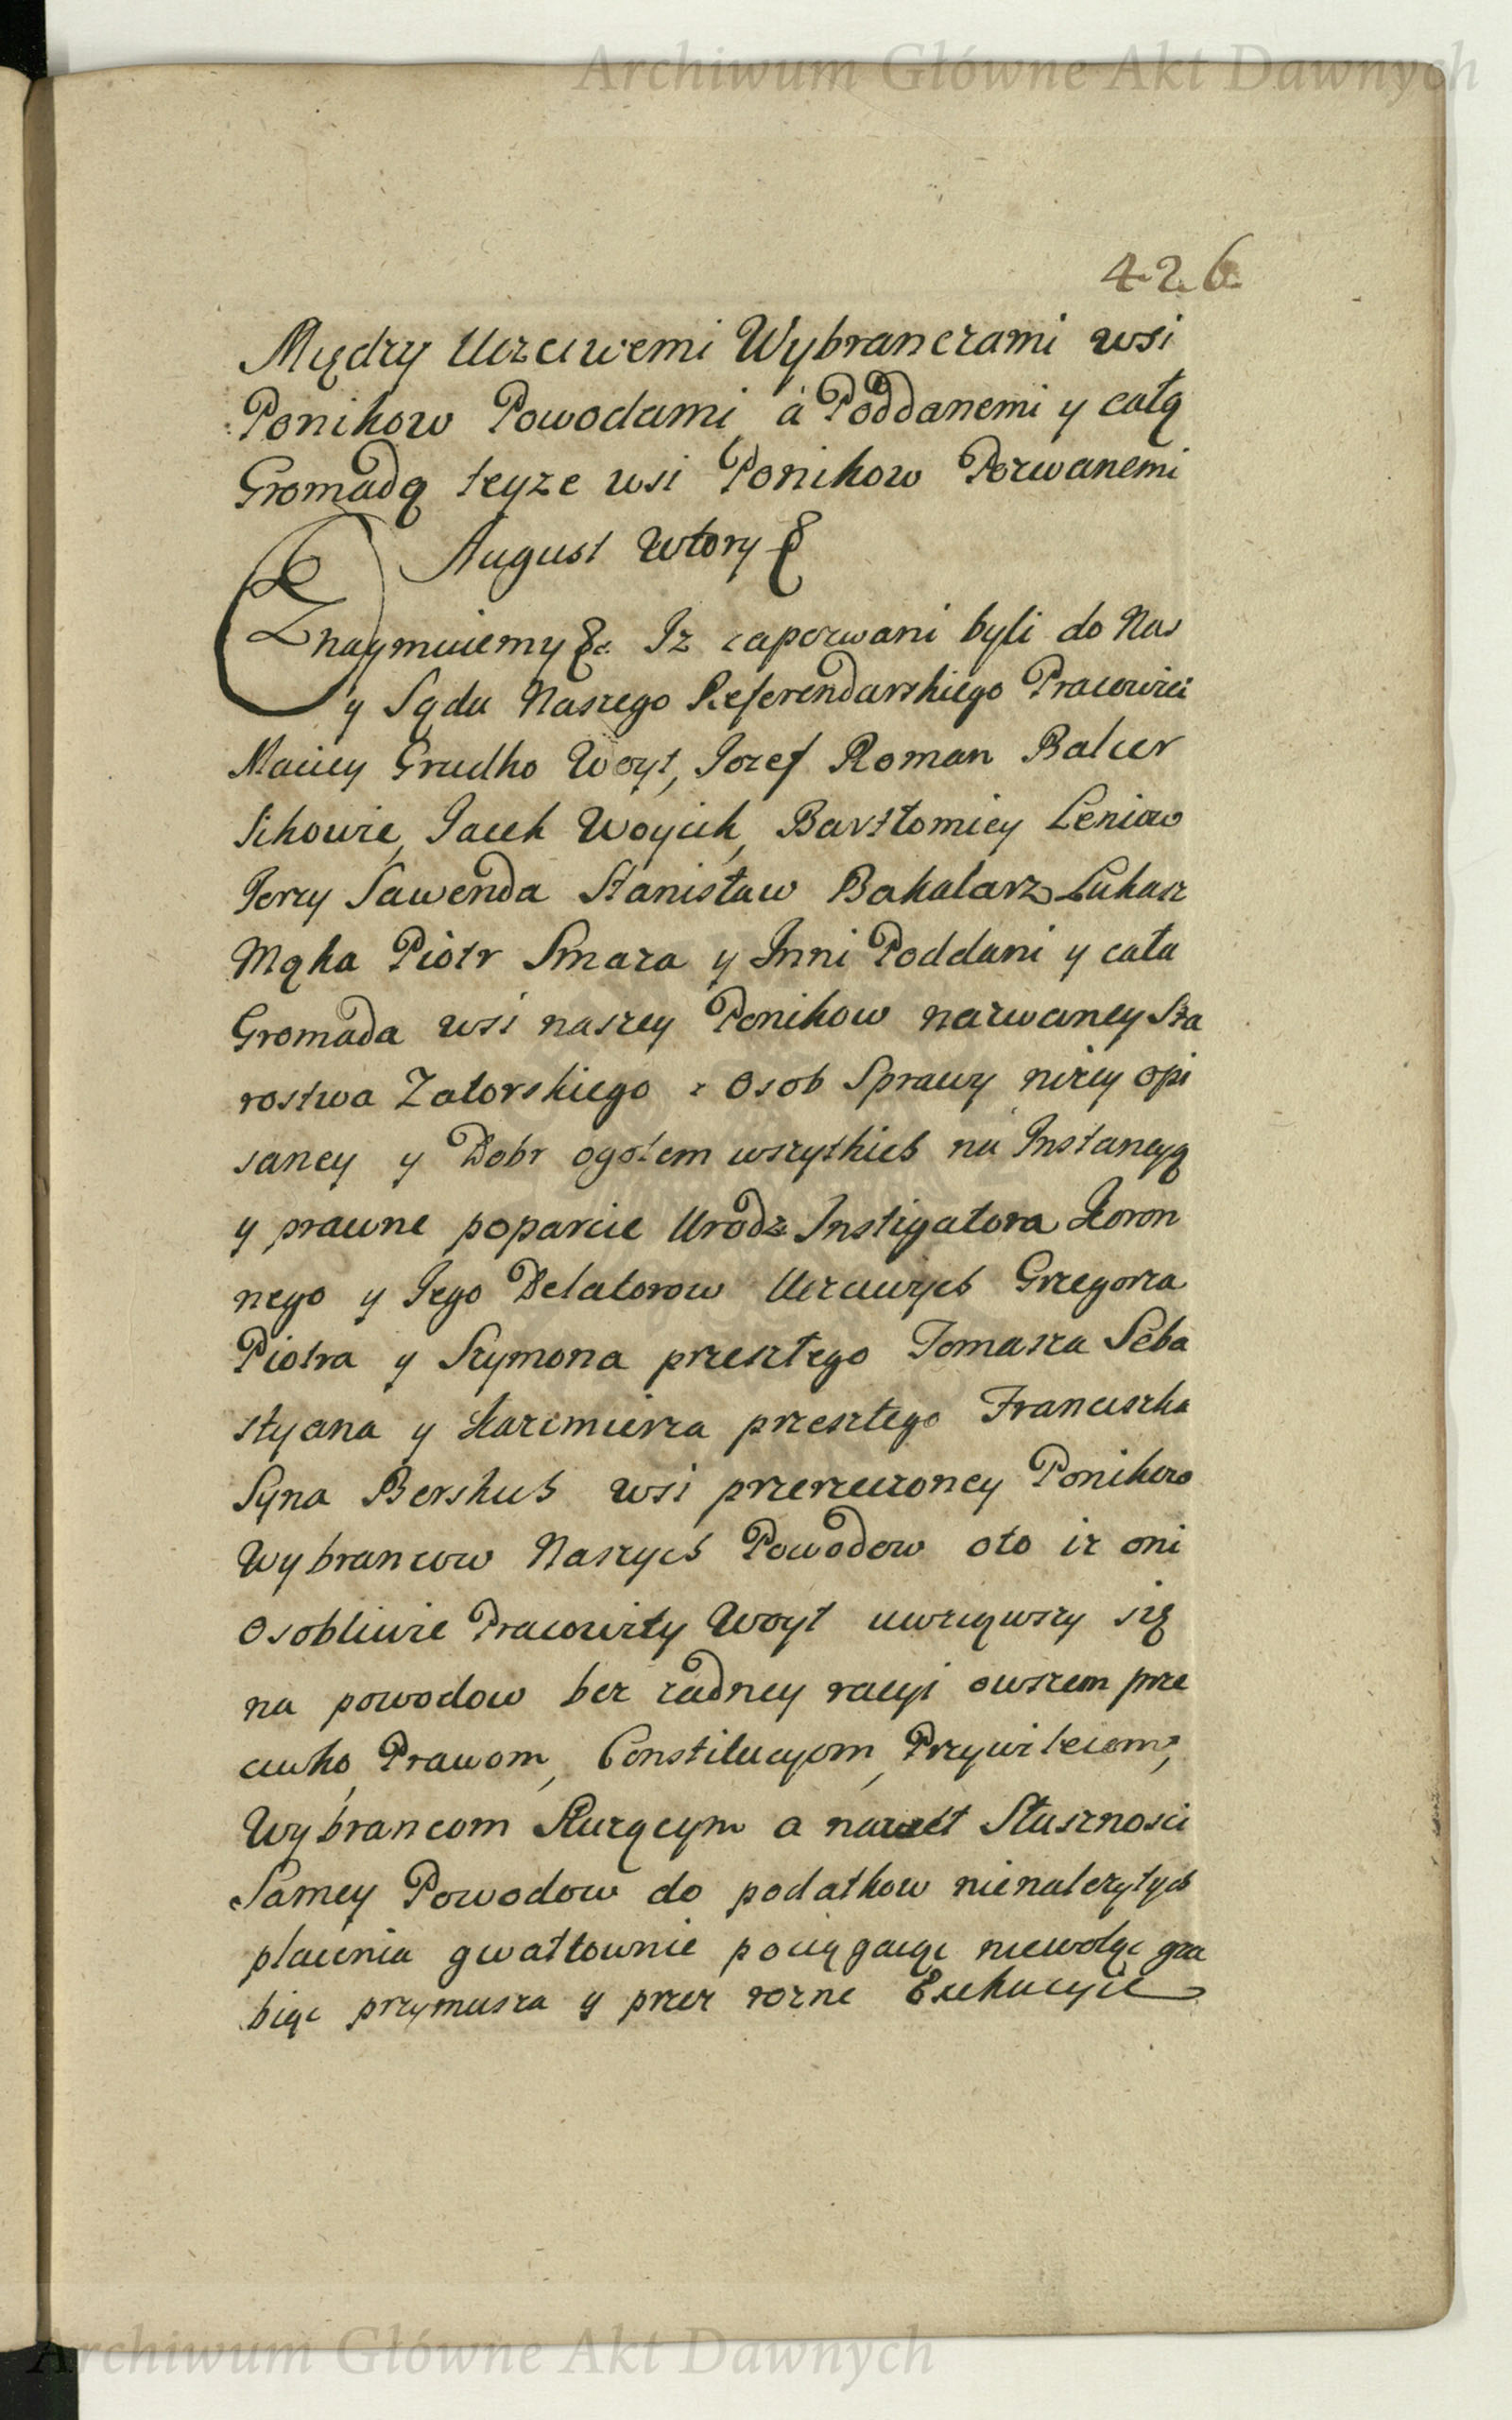 Archiwum Główne Akt Dawnych
426
Między Uczciwemi Wybranczami wsi
Ponikow Powodami á Poddanemi y całą
Gromadą teyze wsi Ponikow Pozwanemi
August Wtory &
Znaymuiemy &c. Iz zapozwani byli do Nas
y Sądu Naszego Referendarskiego Pracowici
Maciey Grudko Woyt, Iozef Roman Balcer
Sikowie, Iacek Woycik, Barłłomiey Leniaw
Ierzy Sawenda Stanisław Bakalarz Lukasz
Mąka Piotr Smaza y Inni Poddani y cała
Gromada wsi naszey Ponikow nazwaney Sta
rostwa Zatorskiego z Osob Sprawy nizey opi
saney y Dobr ogołem wszytkich na Instancyą
y prawne poparcie Urodz Instigatora Koron
nego y Iego Delatorow Uczciwych Grzegorza
Piotra y Szymona przeszłego Tomasza Seba
styana y Kazimierza przeszłego Franciszka
Syna Berskich wsi przerzeczoney Ponikow
Wybrancow Naszych Powodow oto iz oni
Osobliwie Pracowity Woyt uwziąwszy się
na powodow bez zadney racyi owszem prze
ciwko Prawom, Constitucyom, Przywileiom,
Wybrancom Służącym a nawet Słusznosci
Samey Powodow do podatkow nienalezytych
płacenia gwałtownie pociągaiąc niewoląc gra
biąc przymusza y przez rozne Exekucyie
Archiwum Główne Akt Dawnych